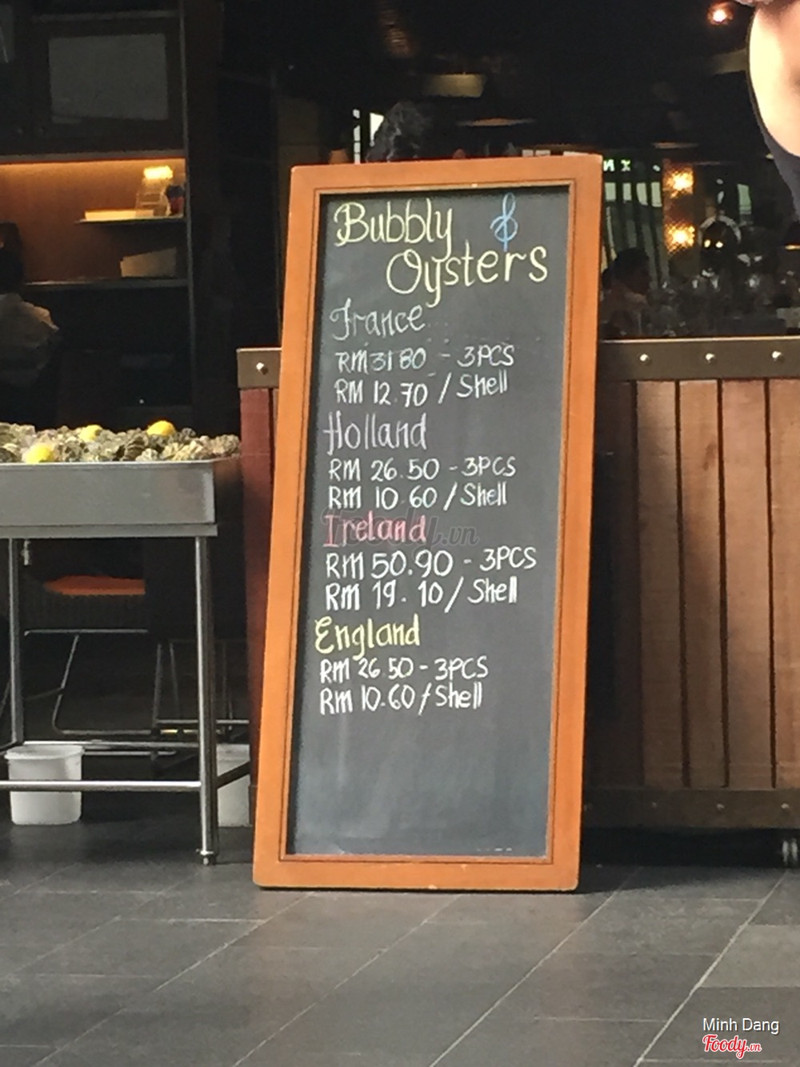 Bubbly &
Oysters
France
RM 31 80 - 3PCS
RM 12.70 / Shell
Holland
RM 26.50 - 3PCS
RM 10 60 / Shell
Ireland
RM 50.90 - 3PCS
RM 19.10 / Shell
England
RM 26 50 - 3PCS
RM 10.60 / Shell
Foody.vn
Minh Dang
Foody.vn